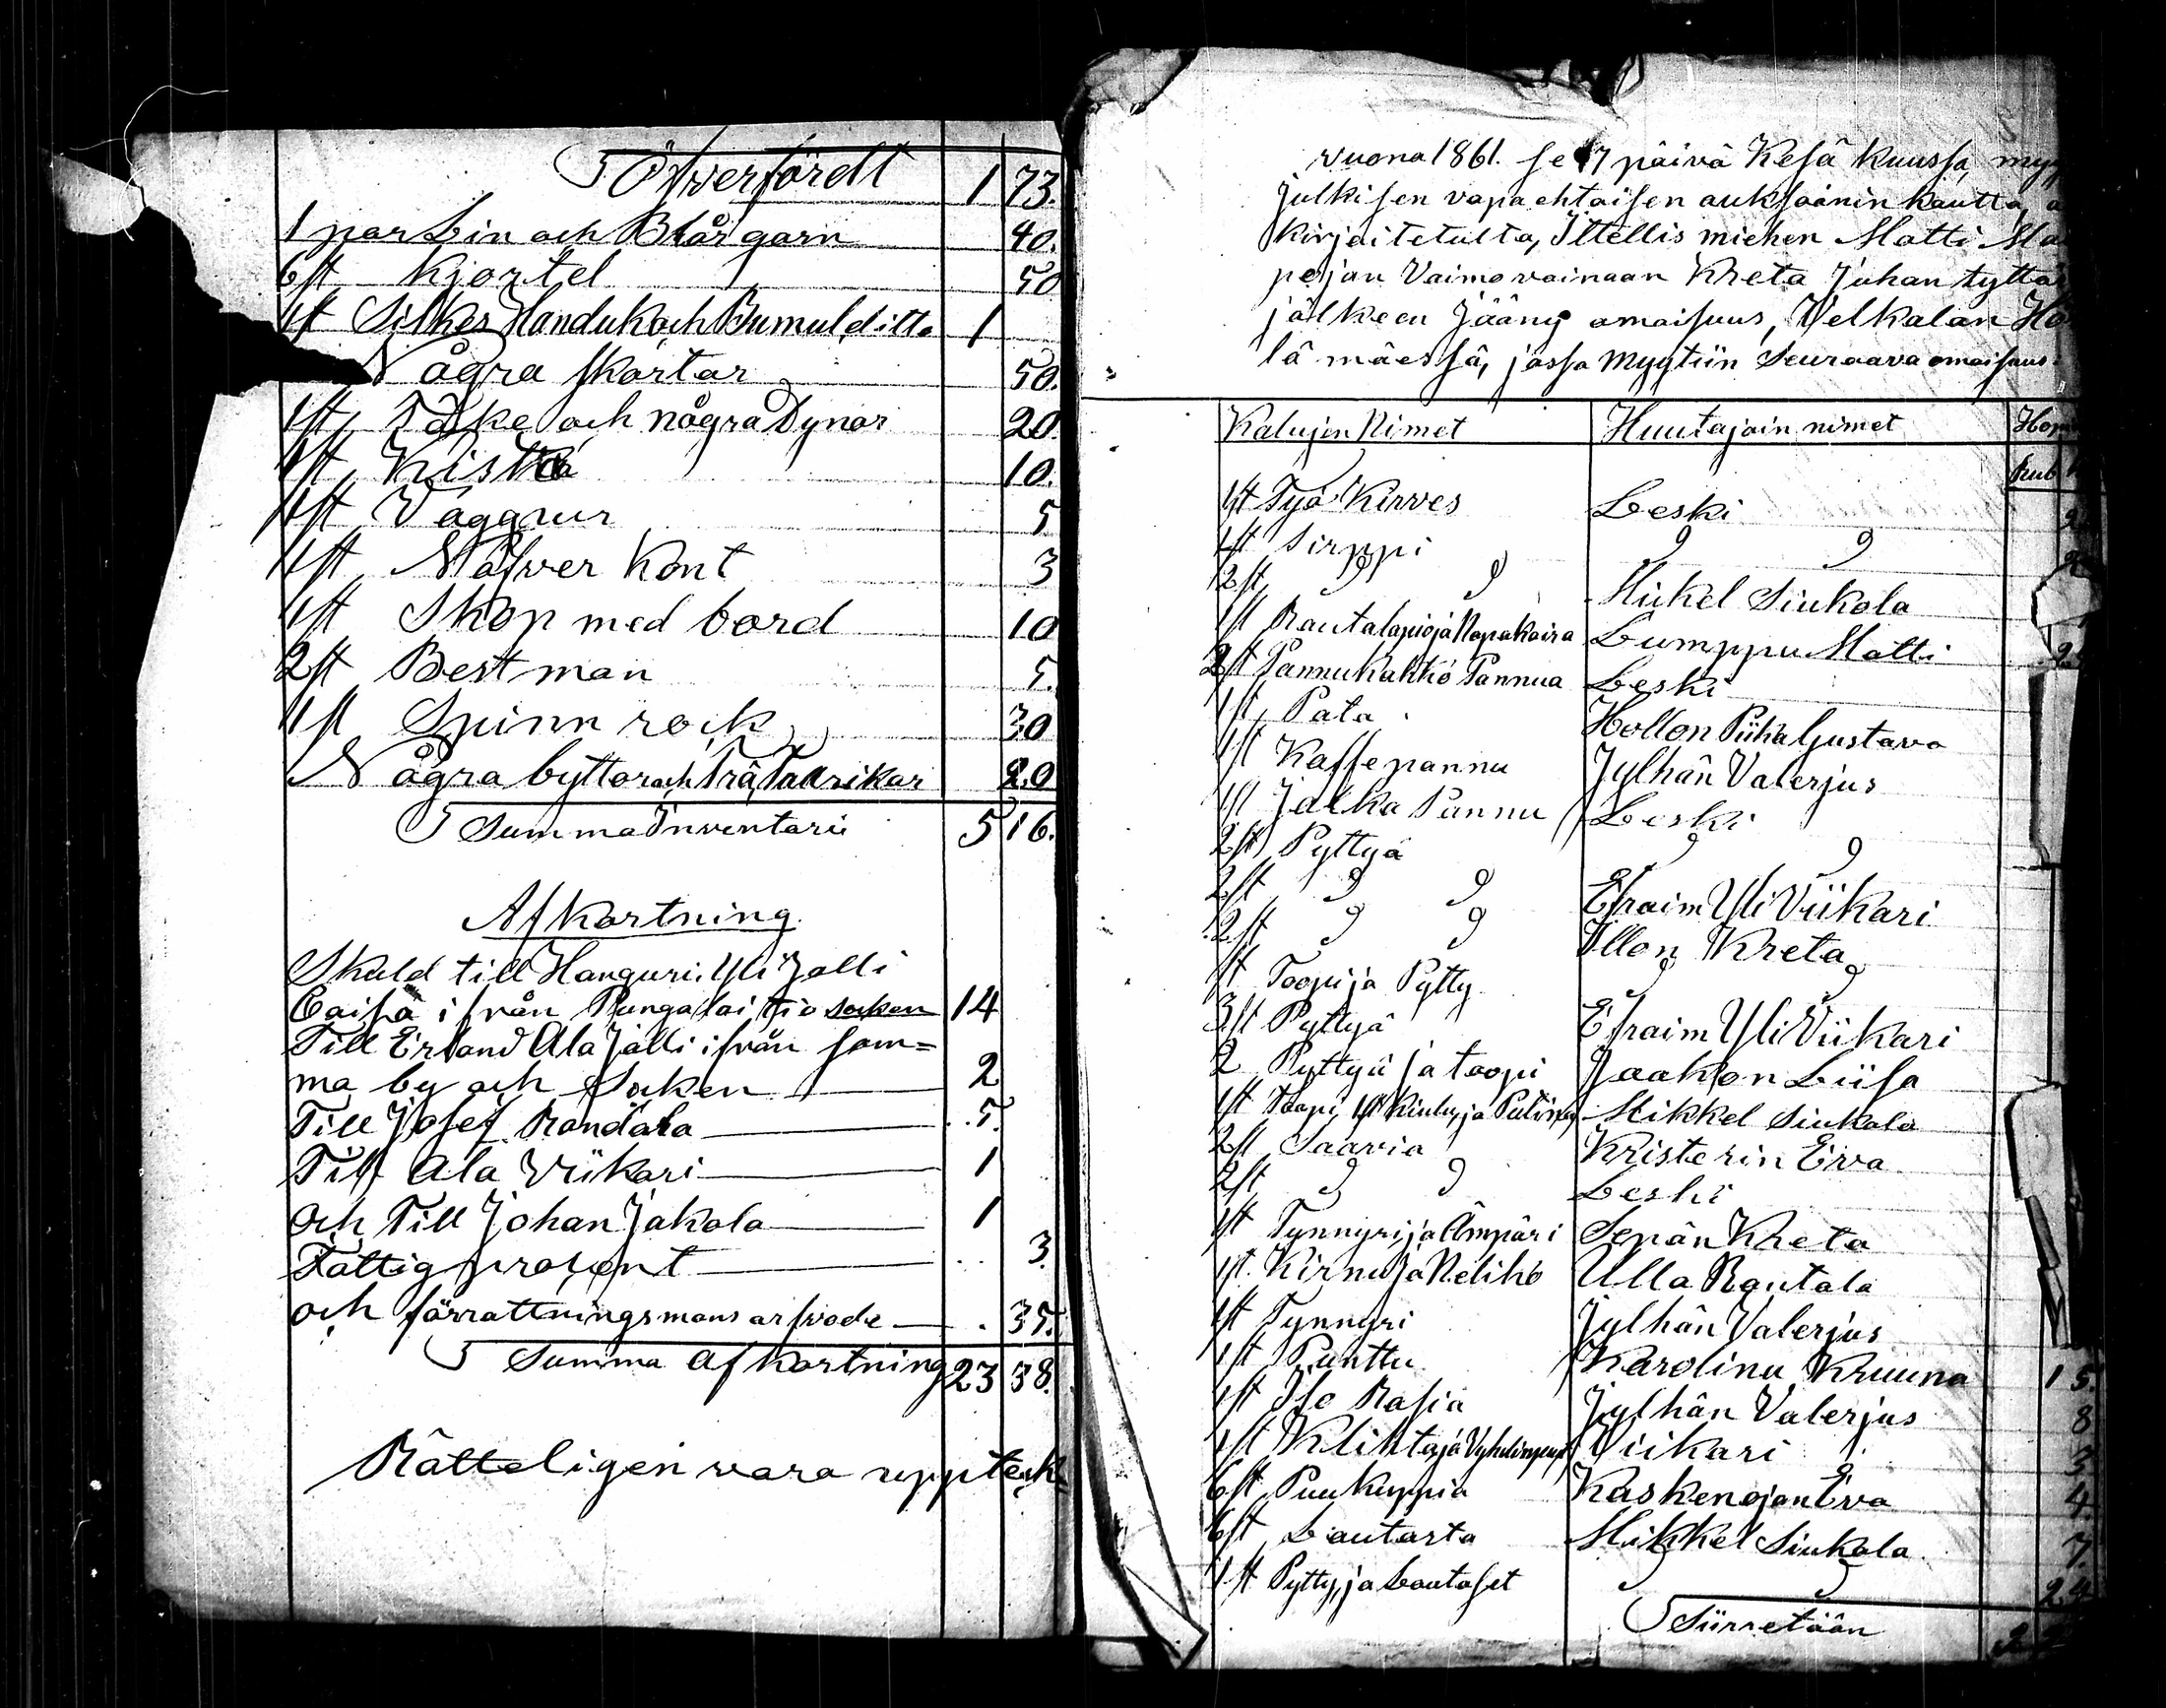 Öfverfördt 1 73.
1 par Lin och Blår garn 40.
6 st Kjortel 50
1 st Silkes Handuk och Bumul, ditto 1
Några skortar 50.
1 st, Täke och några Dynor 20.
1 st, Kista 10.
1 st, Vaggur 5
1 st, Näfver Kont 3
1 st Skop med bord 10
2 st Bestman 5.
1 st Spinn rock 30
Några byttor och Trä Tallrikar 20
Summa Inventarii 5 16.
Afkortning.
Skuld till Hanguri. Yli Jalli
Caisa ifrån Pungalaitio socken 14
Till Erland Ala Jälli ifrån sam=
ma by och Socken 2
Till Josef Randala 5.
Till Ala Viikari 1
och Till Johan Jakola 1
Fattig prosent 3.
och förrattningsmans arfvode 35.
Summa Afkortning 23 38.
Rätteligen vara uppteck
vuona 1861. se 17 päivä Kesä kuussa, myy
julkisen vapaehtoisen auksoonin kautta,
kirjoitetulta, Ittellis miehen Matti Ma
pojan Vaimovainaan Kreta Juhan tyttär
jälkeen Jääny omaisuus, Velkalan Ho
lä mäessä, jossa Myytiin Seuraava omaisuus.
Kalujen Nimet Huutajain nimet
Rub
1 st Työ Kirves Leski
1 st Sirppi 9 9
2 st, 9 9 Mikel Siukola
1 st Rautalapio ja Napakaira Lumppu Matti
2 st Pannukakko Pannua Leski
1 st, Pata. Hollon Piika Gustava
1 st Kaffepannu Jylhän Valerjus
1 st Jalka Pannu Leski
2 st, Pyttyä 9 9
2 st 9 9 Efraim Yli Viikari
2 st 9 9 Illon Kreta
st Toopi ja Pytty 9 9
3 st Pyttyä Efraim Yli Viikari
2 Pyttyä ja toopi Jaakon Liisa
1 st Toopi, 1 st Kiulu, ja Mikkel Siukola
2 st Saavia Kristerin Eva
2 st 9 9 Leski
1 st Tynnyri ja Ämpäri Sepän Kreta
1 st. Kirnu ja Nelikö Ulla Rautala
1 st Tynnyri Jylhän Valerjus
1 st Punttu Karolinu Kruuna 1 5.
1 st Iso Rasia Jylhän Valerjus 8
1 st Viikari 3
6 st Puu Kuppia Kaskenojan Eva 4.
6 st, Lautasta Mikkel Siukola 7.
1 st Pytty, ja Lautaset 9 9 24
Siirretään